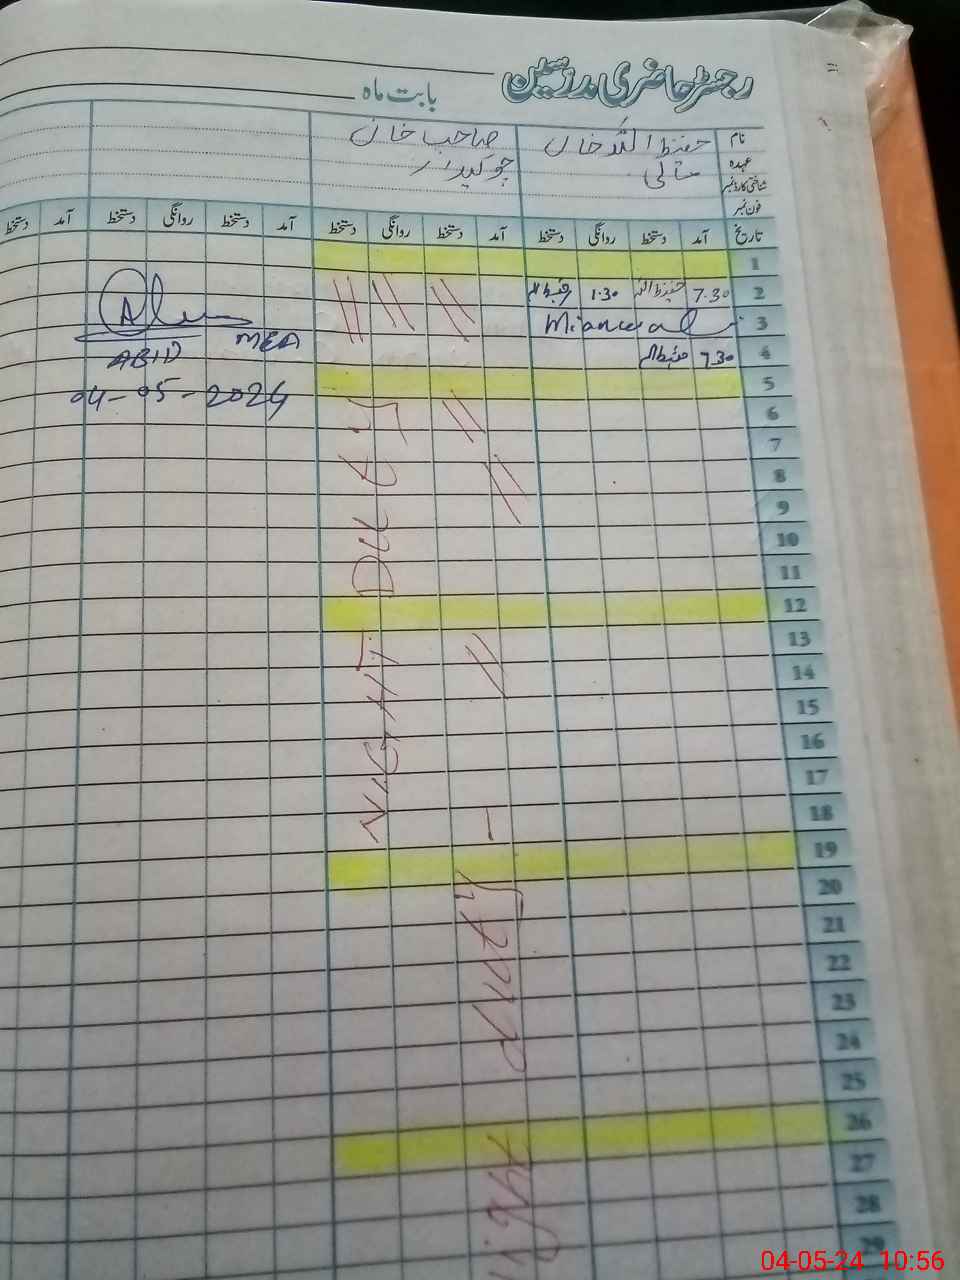 رجسٹر حاضری مدرسین
بابت ماہ
نام حفیظ اللہ خان صاحب خان
عہدہ مالی چوکیدار
شناختی کارڈ نمبر
فون نمبر
تاریخ آمد دستخط روانگی دستخط آمد دستخط روانگی دستخط آمد دستخط روانگی دستخط آمد دستخط
1
2 7.30 حفیظ اللہ 1.30 حفیظ اللہ
3 Mianwali
4 7.30 حفیظ اللہ
5
6
7
8
9
10
11
12
13
14
15
16
17
18
19
20
21
22
23
24
25
26
27
28
29
NIGHT Duty
Night duty
ABID MEA
04-05-2024
04-05-24 10:56